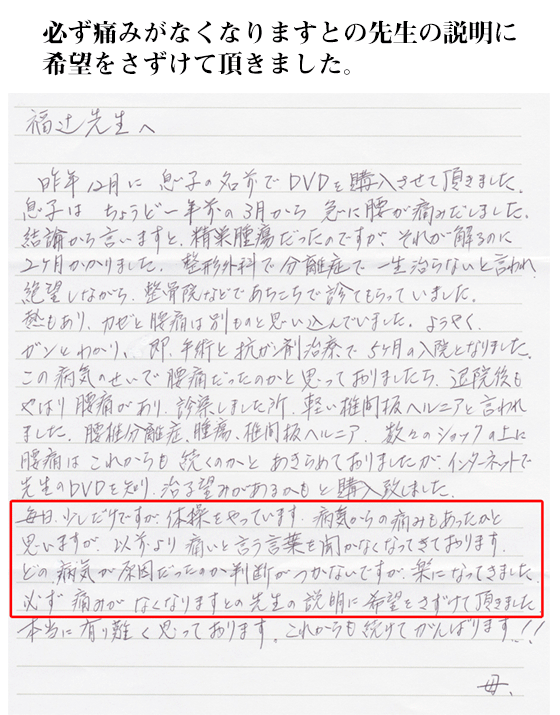 必ず痛みがなくなりますとの先生の説明に
希望をさずけて頂きました。
福辻先生へ
昨年12月に 息子の名前でDVDを購入させて頂きました。
息子は ちょうど一年前の3月から 急に腰が痛みだしました。
結論から言いますと、精巣腫瘍だったのですが、それが解るのに
2ヶ月かかりました。整形外科で分離症で一生治らないと言われ
絶望しながら、整骨院などであちこちで診てもらっていました。
熱もあり、カゼと腰痛は別ものと思い込んでいました。ようやく、
ガンとわかり、即、手術と抗ガン剤治療で5ヶ月の入院となりました。
この病気のせいで腰痛だったのかと思っておりましたら、退院後も
やはり腰痛があり、診察しました所、軽い椎間板ヘルニアと言われ
ました。腰椎分離症、腫瘍、椎間板ヘルニア、数々のショックの上に
腰痛はこれからも続くのかとあきらめておりましたが、インターネットで
先生のDVDを知り、治る望みがあるかもと購入致しました。
毎日、少しだけですが、体操をやっています。病気からの痛みもあったかと
思いますが、以前より痛いと言う言葉を聞かなくなってきております。
どの病気が原因だったのか判断がつかないですが、楽になってきました。
必ず痛みがなくなりますとの先生の説明に希望をさずけて頂きました。
本当に有り難く思っております。これからも続けてがんばります!!
母、